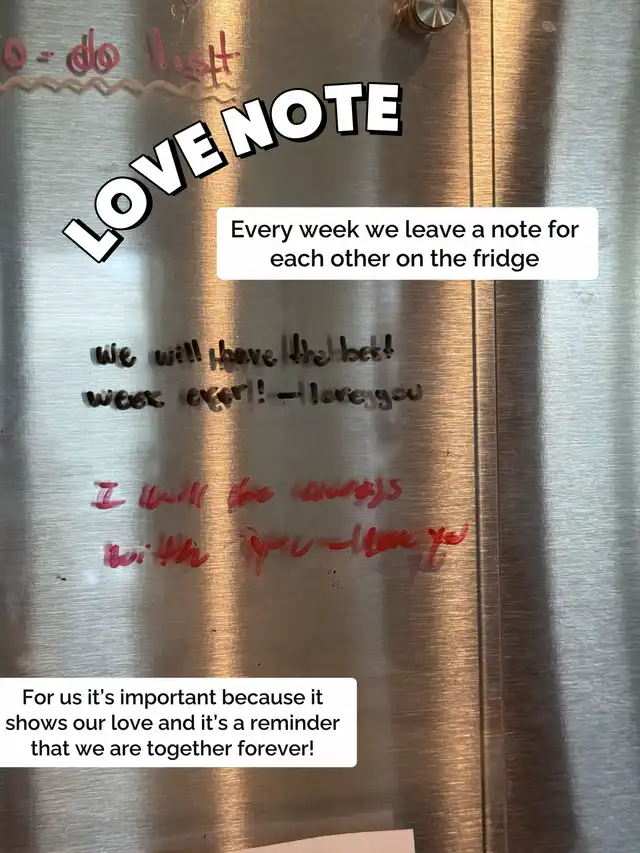 o - do list
LOVE NOTE
Every week we leave a note for
each other on the fridge
we will have the best
week ever! - I love you
I will be always
with you - I love you
For us it's important because it
shows our love and it's a reminder
that we are together forever!